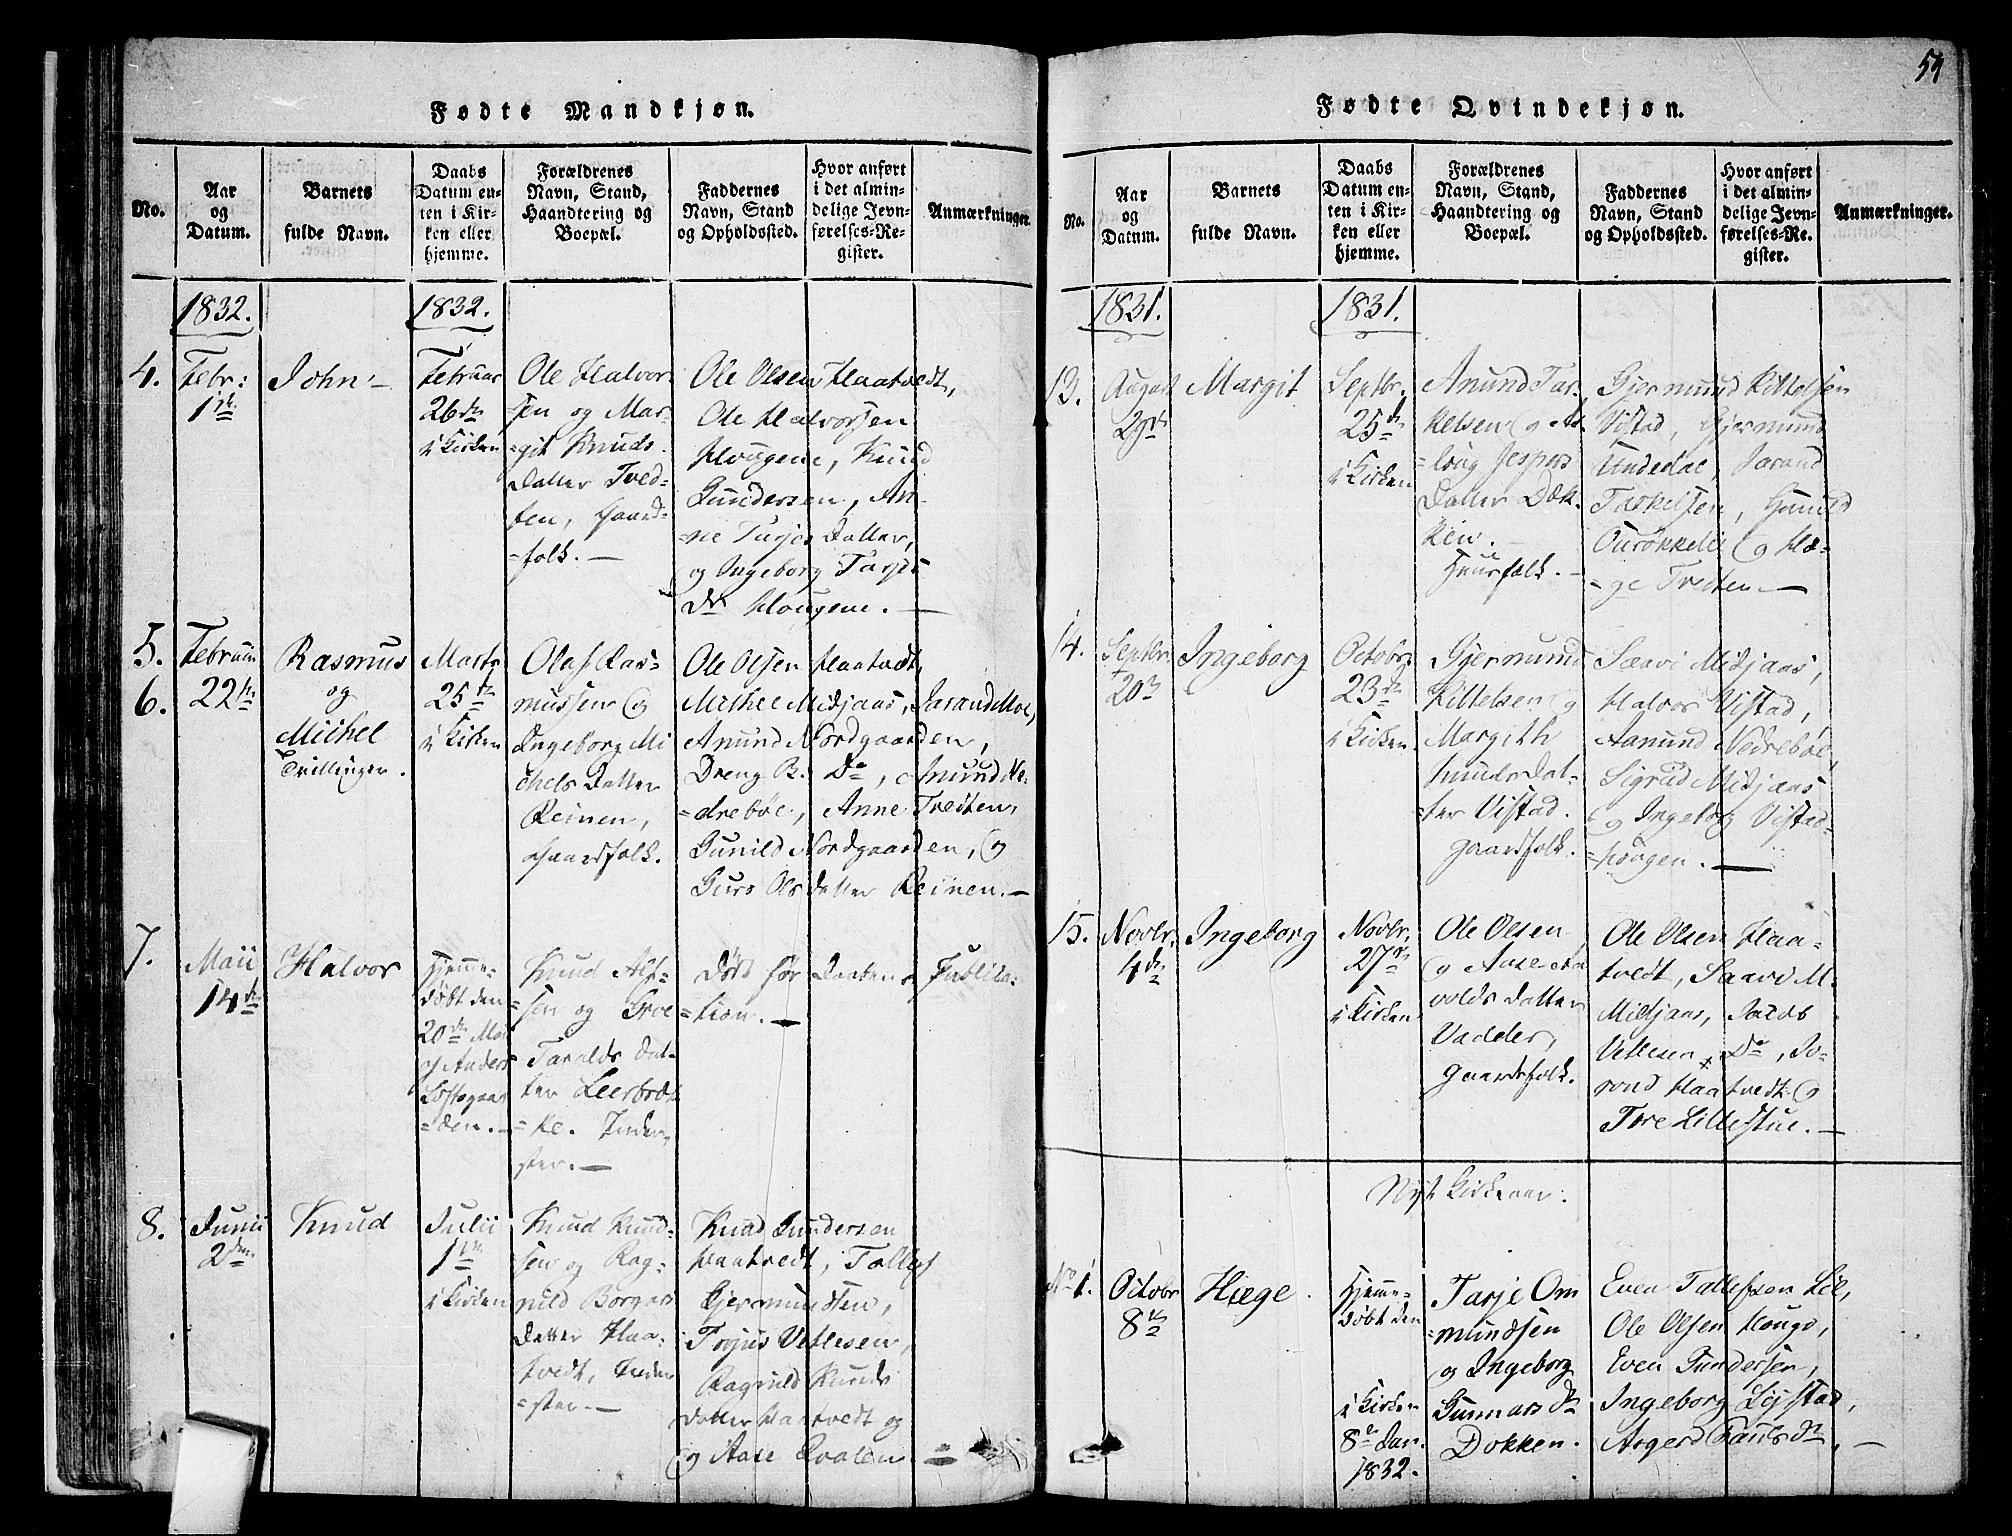 54
Fødte Mandkjøn.
No.
Aar
og
Datum.
Barnets
fulde Navn.
Daabs
Datum en-
ten i Kir-
ken eller
hjemme.
Forældrenes
Navn, Stand,
Haandtering og
Boepæl.
Faddernes
Navn, Stand
og Opholdssted.
Hvor anført
i det almin-
delige Jevn-
førelses-Re-
gister.
Anmærkninger.
1832.
1832.
4.
Febr:
1ste
John
Februar
26de
i Kirken
Ole Halvor-
sen og Mar-
=git Knuds
Datter Tved-
ten, Gaard-
=folk. —
Ole Olsen Haatvedt,
Ole Halvorsen
Hougene, Knud
Gundersen, An-
=ne Tarjes Datter,
og Ingeborg Tarjes
Dtr Hougene. —
5.
6.
Februar
22de
Rasmus
og
Michel
Tvillinger.
Marts
25de
i Kirken
Olaf Ras-
mussen og
Ingeborg Mi
chels Datter
Reinen,
Gaardfolk.
Ole Olsen Haatvedt,
Mikkel Midjaas, Jarand Moe,
Anund Nordgaarden,
Dreng B. Do, Anund Ne-
=drebøe, Anne Tvedten,
Gunild Nordgaarden, og
Guro Ols Datter Reinen. —
7.
Maii
14de
Halvor
Hjemme-
døbt den
20de Mai
af Anders
Loftsgaar
=den. —
Knud Alf-
=sen og Groe
Taralds Dat-
ter Leerbræk
=ke. Inder-
ster. —
Død før Daabens Publika-
=tion. —
8.
Junii
2den
Knud
Julii
1ste
i Kirken
Knud Knud-
=sen og Rag-
nild Borgers
Datter Haa-
tvedt, Inder
=ster. —
Knud Gundersen
Haatvedt, Tallef
Gjermundsen,
Torjus Vetlesen,
Ragnild Knuds
Datter Haatvedt og
og Aase Qvalen. —
Fødte Qvindekjøn.
No.
Aar
og
Datum.
Barnets
fulde Navn.
Daabs
Datum en-
ten i Kir-
ken eller
hjemme.
Forældrenes
Navn, Stand,
Haandtering og
Boepæl.
Faddernes
Navn, Stand
og Opholdssted.
Hvor anført
i det almin-
delige Jevn-
førelses-Re-
gister.
Anmærkninger.
1831.
1831.
13.
August
29de
Margit
Septbr.
25de
i Kirken
Anund Tar-
kelsen og As
=loug Jespers
Datter Dok-
ken.
Huusfolk. —
Gjermund Kittelsen
Vistad, Gjermund
Undedal, Jarand
Tarkelsen, Gunild
og Hæ-
=ge Tvedten —
14.
Septbr.
20de
Ingeborg
Octobr.
23de
i Kirken
Gjermund
Kittelsen og
Margith
Knuds Dat-
=ter Vistad.
Gaardfolk.
Saavi Midjaas,
Halvor Vistad,
Aanund Nedrebøe,
Sigrid Midjaas
og Ingeborg Vistad-
=hougen. —
15.
Novbr.
4de
Ingeborg
Novbr.
27de
i Kirken
Ole Olsen
og Aase
volds Datter
Vadder,
Gaardfolk.
Ole Olsen Haa-
tvedt, Saavi M.
Midjaas, Jacob
Vetlesen Do, Jo-
rond Haatvedt og
Tore Lillestue. —
Nyt Kirkeaar.
No 1.
Octobr
8de
Hæge.
Hjemme-
døbt den
i Kirken
8de Jan.
1832.
Tarje Om
=mundsen
og Ingeborg
Gunnars Dtr
Dokken.
Even Tallefsen Lil,
Ole Olsen Hougo,
Even Gundersen,
Ingeborg Lystad,
Asgerd Dtr, —